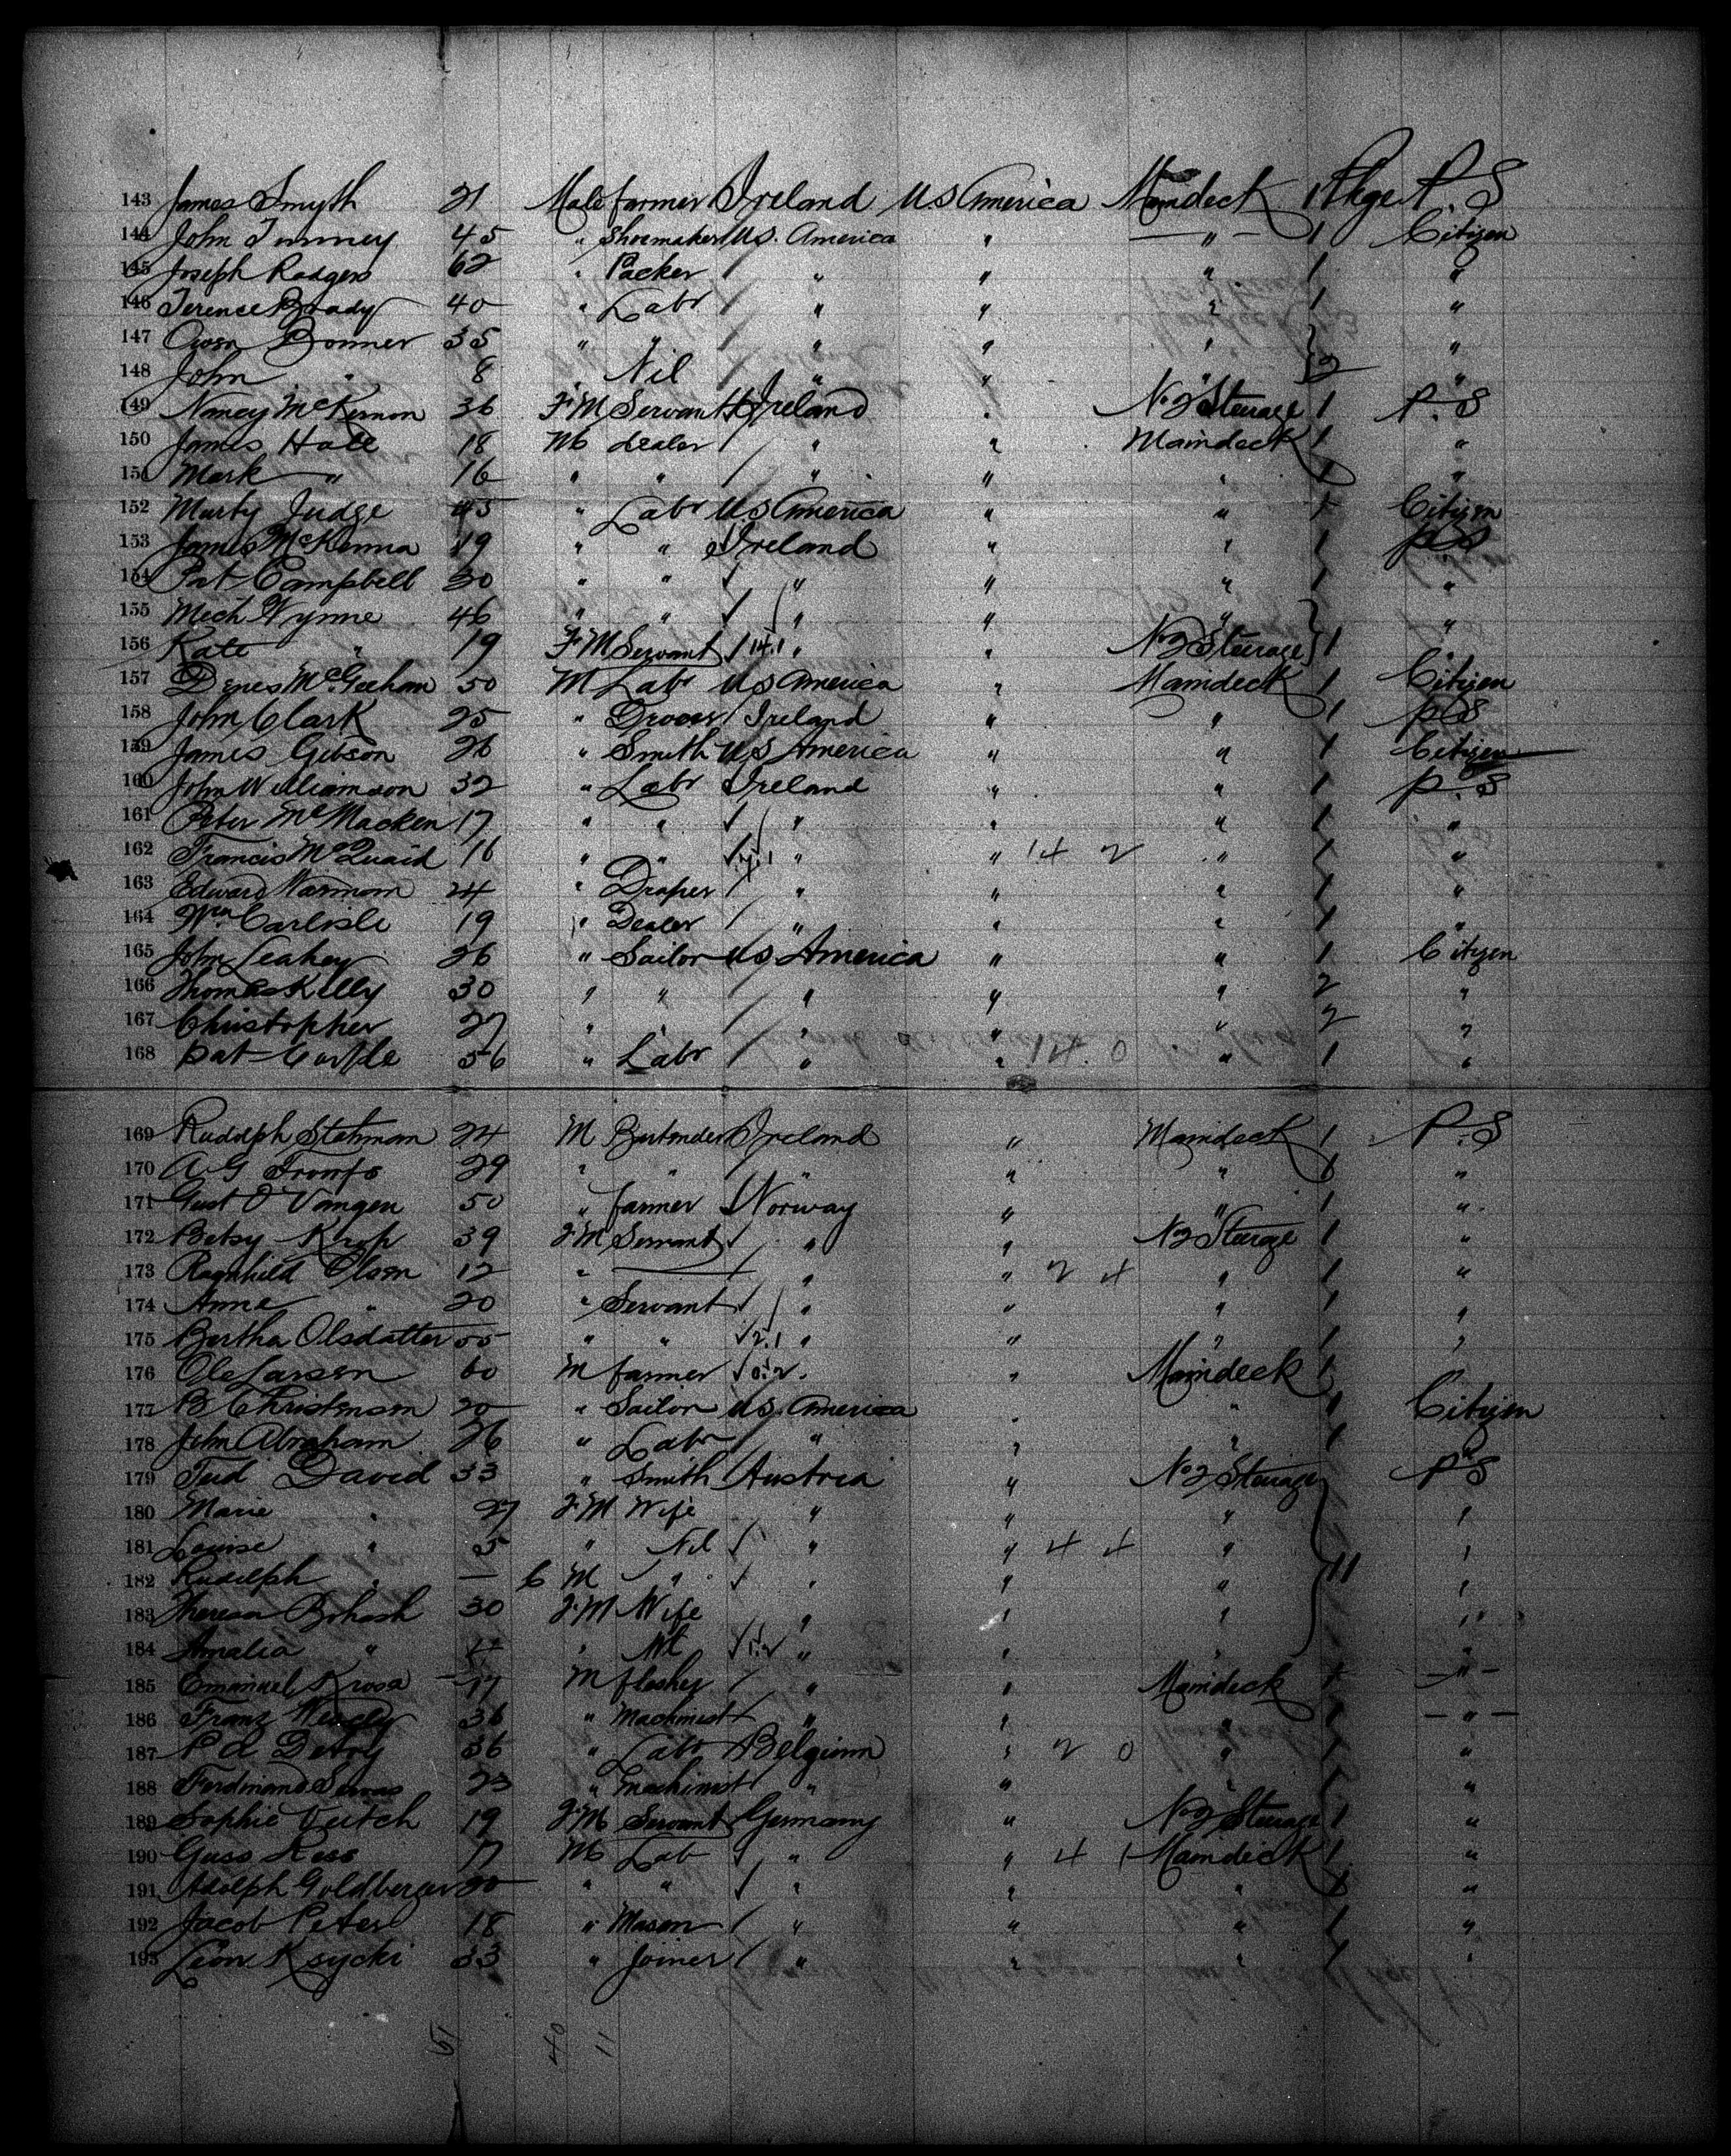 143 James Smyth 21 Male farmer Ireland US America Maindeck 1 Pkge P.S
144 John Tunney 45 " Shoemaker US. America " " 1 Citizen
145 Joseph Rodgers 62 " Packer " " " 1 "
146 Terence Brady 40 " Labr " " " 1 "
147 Owen Bonner 35 " " " " " "
148 John " 8 " Nil " " " 2 "
149 Nancy McKernon 36 F M Servant Ireland " No 2 Steerage 1 P.S
150 James Hale 18 M dealer " " Maindeck 1 "
151 Mark " 16 " " " " " 1 "
152 Marty Judge 45 " Labr US America " " 1 Citizen
153 James McKenna 19 " " Ireland " " 1 P.S
154 Pat Campbell 30 " " " " " 1 "
155 Mich Wynne 46 " " " " " "
156 Kate " 19 F M Servant 14.1 " " No 2 Steerage 1 "
157 McGeehan 50 M Labr US America " Maindeck 1 Citizen
158 John Clark 25 " Drover Ireland " " 1 P.S
159 James Gibson 26 " Smith US America " " 1 Citizen
160 John Williamson 32 " Labr Ireland " " 1 P.S
161 Peter McMacken 17 " " " " " 1 "
162 Francis McQuaid 16 " " " " 14 2 " 1 "
163 Edward 24 " Draper " " " 1 "
164 Wm Carlisle 19 " Dealer " " " 1 "
165 John Leahey 26 " Sailor US America " " 1 Citizen
166 Thomas Kelly 30 " " " " " 2 "
167 Christopher 27 " " " " " 2 "
168 Pat 56 " Labr " " 14 0 " 1 "
169 Rudolph Stehman 24 M Bartender Ireland " Maindeck 1 P.S
170 A G 29 " " " " " 1 "
171 Gust O Vangen 50 " farmer Norway " " 1 "
172 Betsy 39 F M Servant " " No 2 Steerage 1 "
173 Ragnhild Olsen 12 " — " " 2 4 " 1 "
174 Anne " 20 " Servant " " " 1 "
175 Bertha Olsdatter 55 " " 2.1 " " " 1 "
176 Ole Larsen 60 M farmer 0.2 " " Maindeck 1 "
177 B Christensen 20 " Sailor US. America " " 1 Citizen
178 John Abraham 26 " Labr " " " 1 "
179 David 33 " Smith Austria " No 2 Steerage P.S
180 Marie " 27 F M Wife " " " "
181 Louise " 5 " Nil " " 4 4 " "
182 Rudolph " — 6 M " " " " 11 "
183 Theresa 30 F M Wife " " " "
184 Amalia " " Nil " " " "
185 Emanuel 17 M " " Maindeck 1 "
186 Franz 36 " Machinest " " " 1 "
187 36 " Labr Belgium " 2 0 " 1 "
188 Ferdinand 23 " machinist " " " 1 "
189 Sophie Veitch 19 F M Servant Germany " No 2 Steerage 1 "
190 Guss 17 M Lab " " 4 1 Maindeck 1 "
191 Adolph Goldberger 20 " " " " " 1 "
192 Jacob Peter 18 " Mason " " " 1 "
193 Leon Ksycki 33 " Joiner " " " 1 "
51 40 11